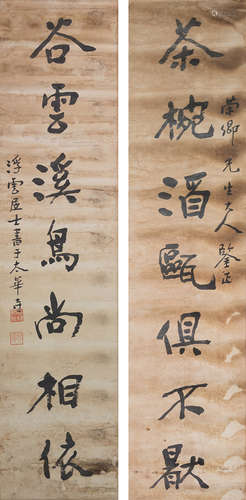 茶椀酒甌俱不厭
榮卿先生大人鑒正
谷雲溪鳥尚相依
浮雲居士書于太華寺